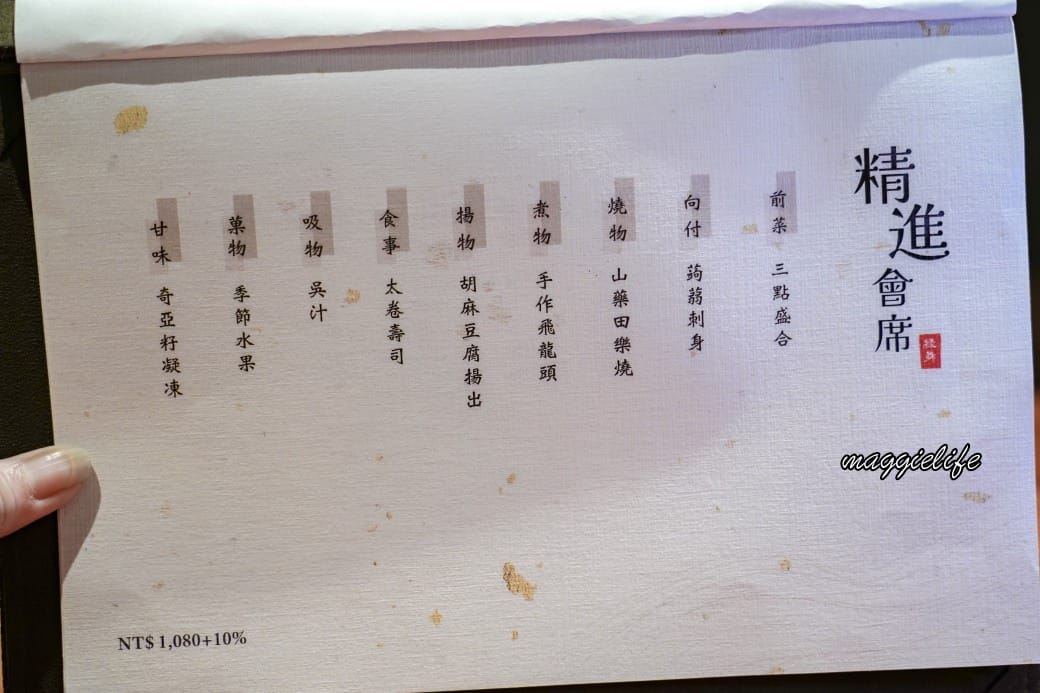 精進會席
緣舞
前菜 三點盛合
向付 蒟蒻刺身
燒物 山藥田樂燒
煮物 手作飛龍頭
揚物 胡麻豆腐揚出
食事 太卷壽司
吸物 吳汁
菓物 季節水果
甘味 奇亞籽凝凍
NT$ 1,080+10%
maggielife